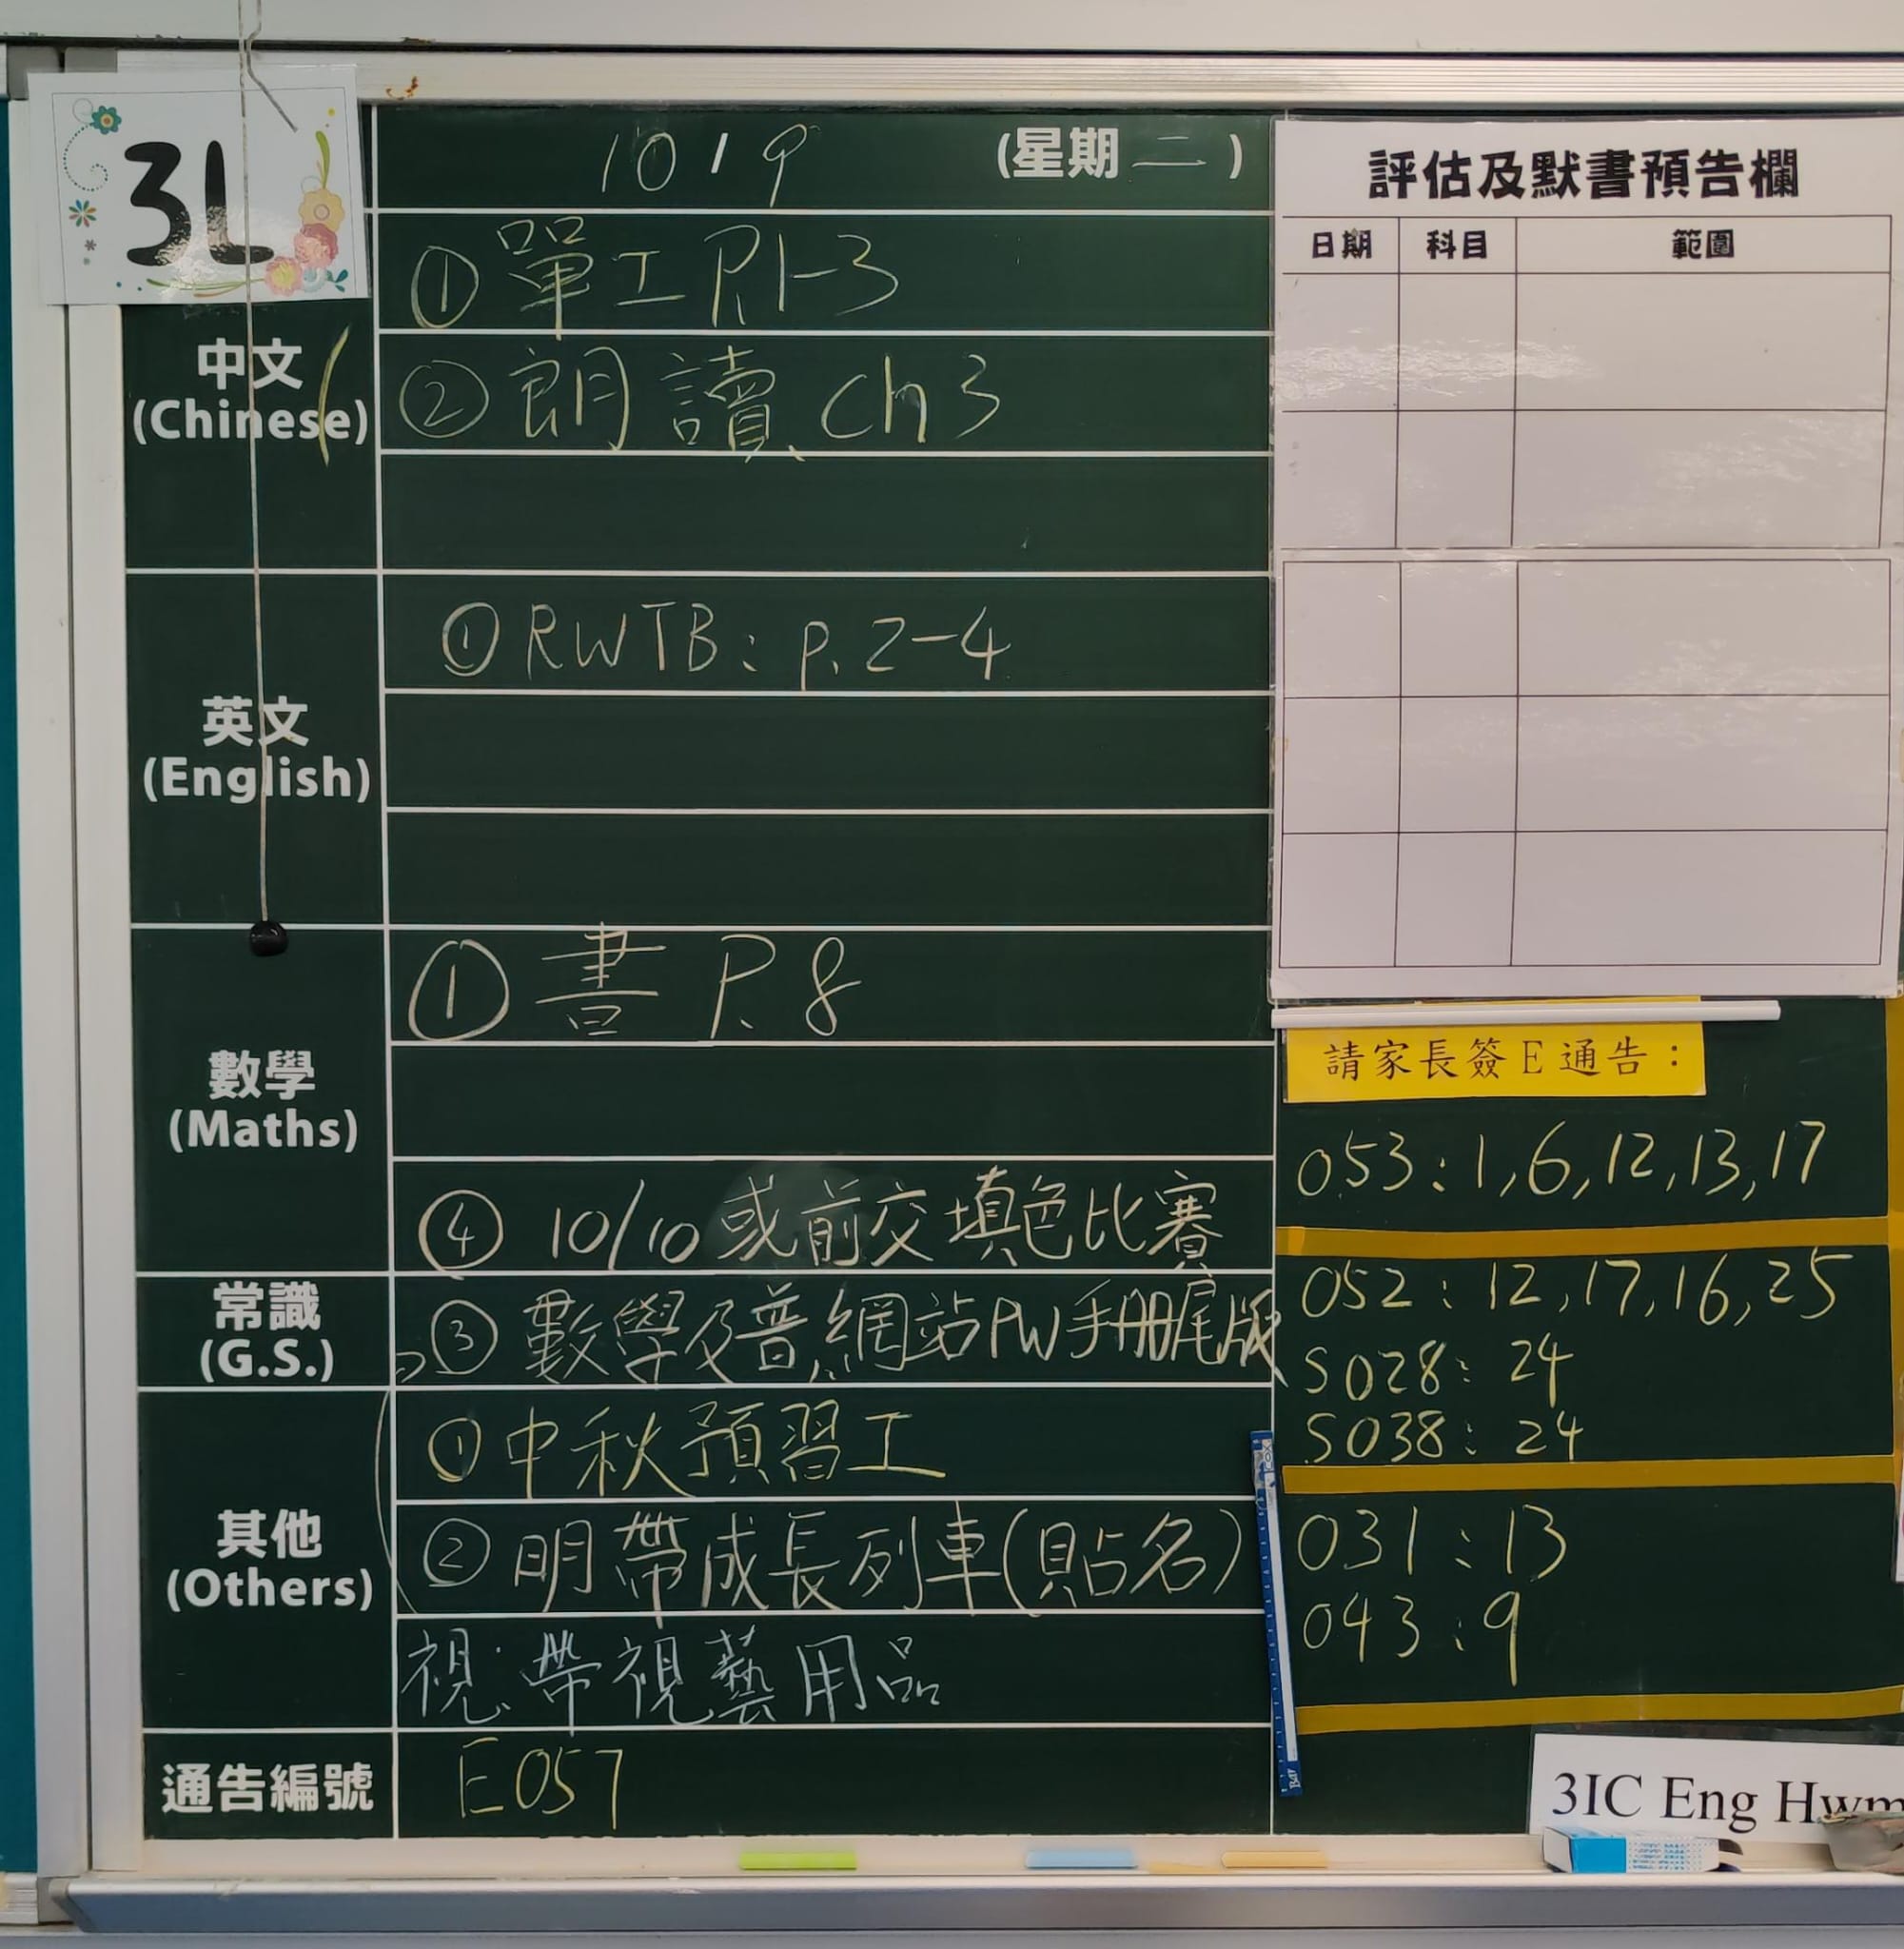 3L
10/9 (星期二)
中文
(Chinese)
① 單工 P.1-3
② 朗讀 ch 3
英文
(English)
① RWTB: p. 2-4
數學
(Maths)
① 書 P. 8
④ 10/10 或前交填色比賽
常識
(G.S.)
③ 數學及普網站PW手冊尾版
其他
(Others)
① 中秋預習工
② 明帶成長列車(貼名)
視:帶視藝用品
通告編號
E057
評估及默書預告欄
日期 科目 範圍
請家長簽E通告:
053: 1, 6, 12, 13, 17
052: 12, 17, 16, 25
S028: 24
S038: 24
031: 13
043: 9
3IC Eng Hwm